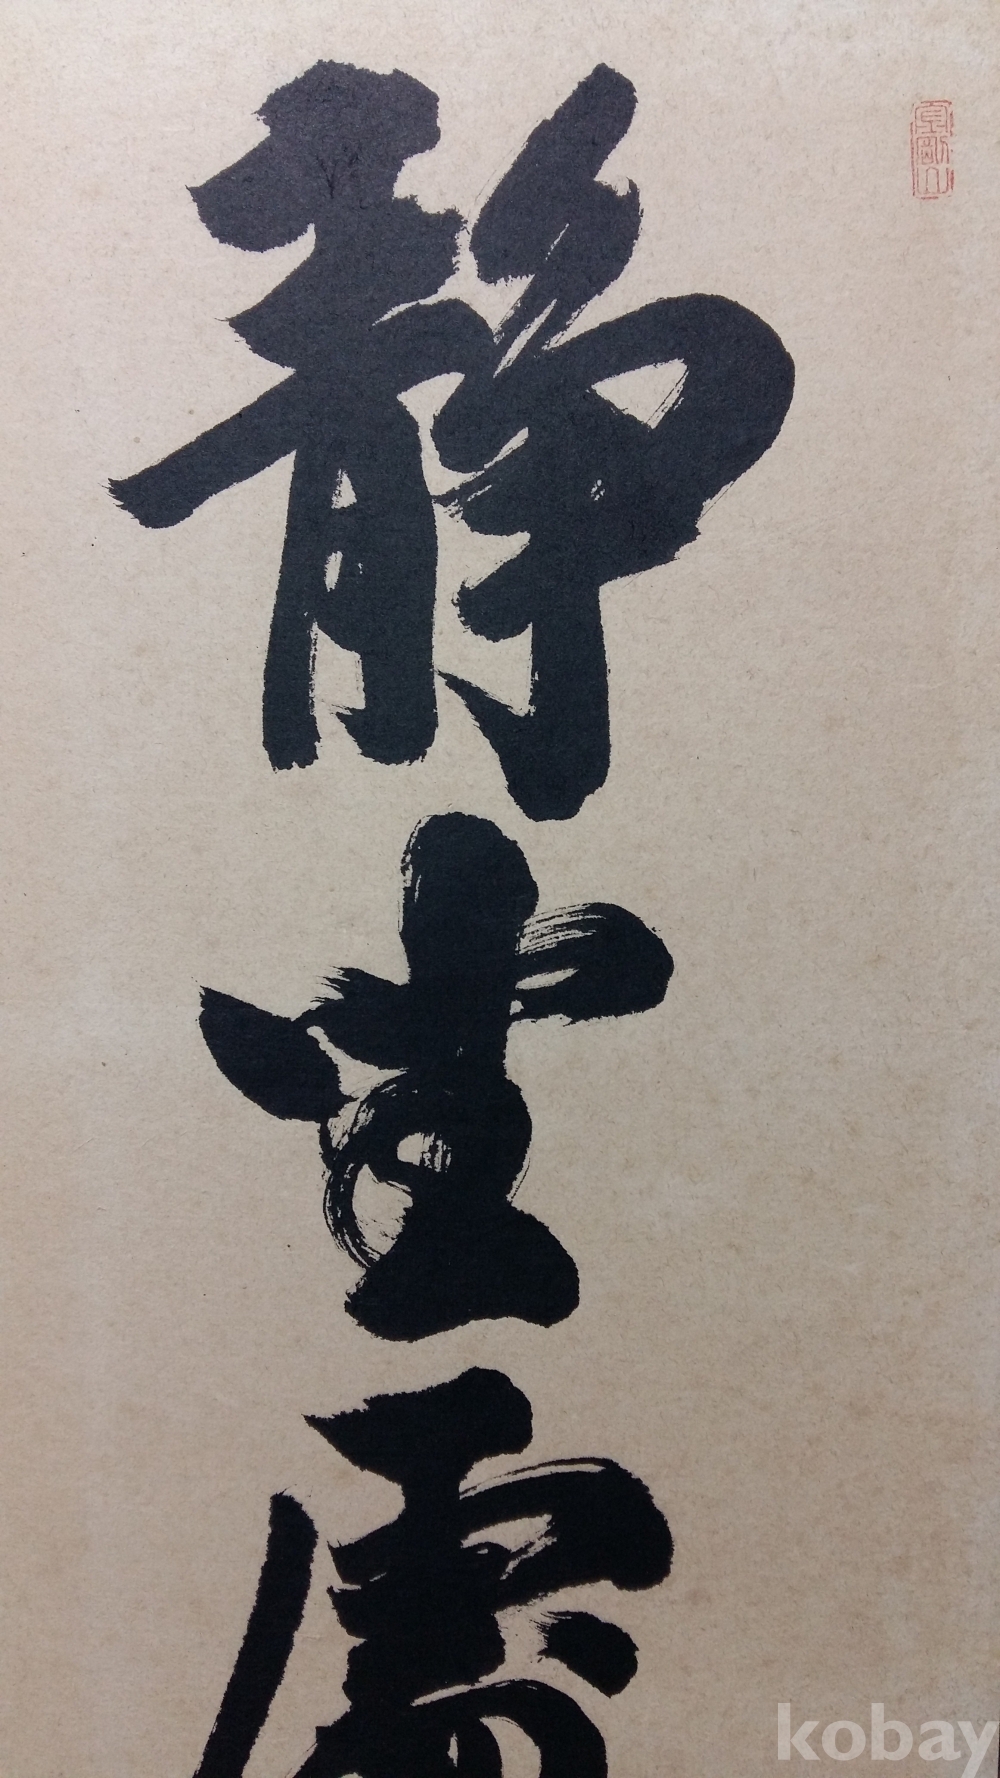 靜
坐
處
kobay